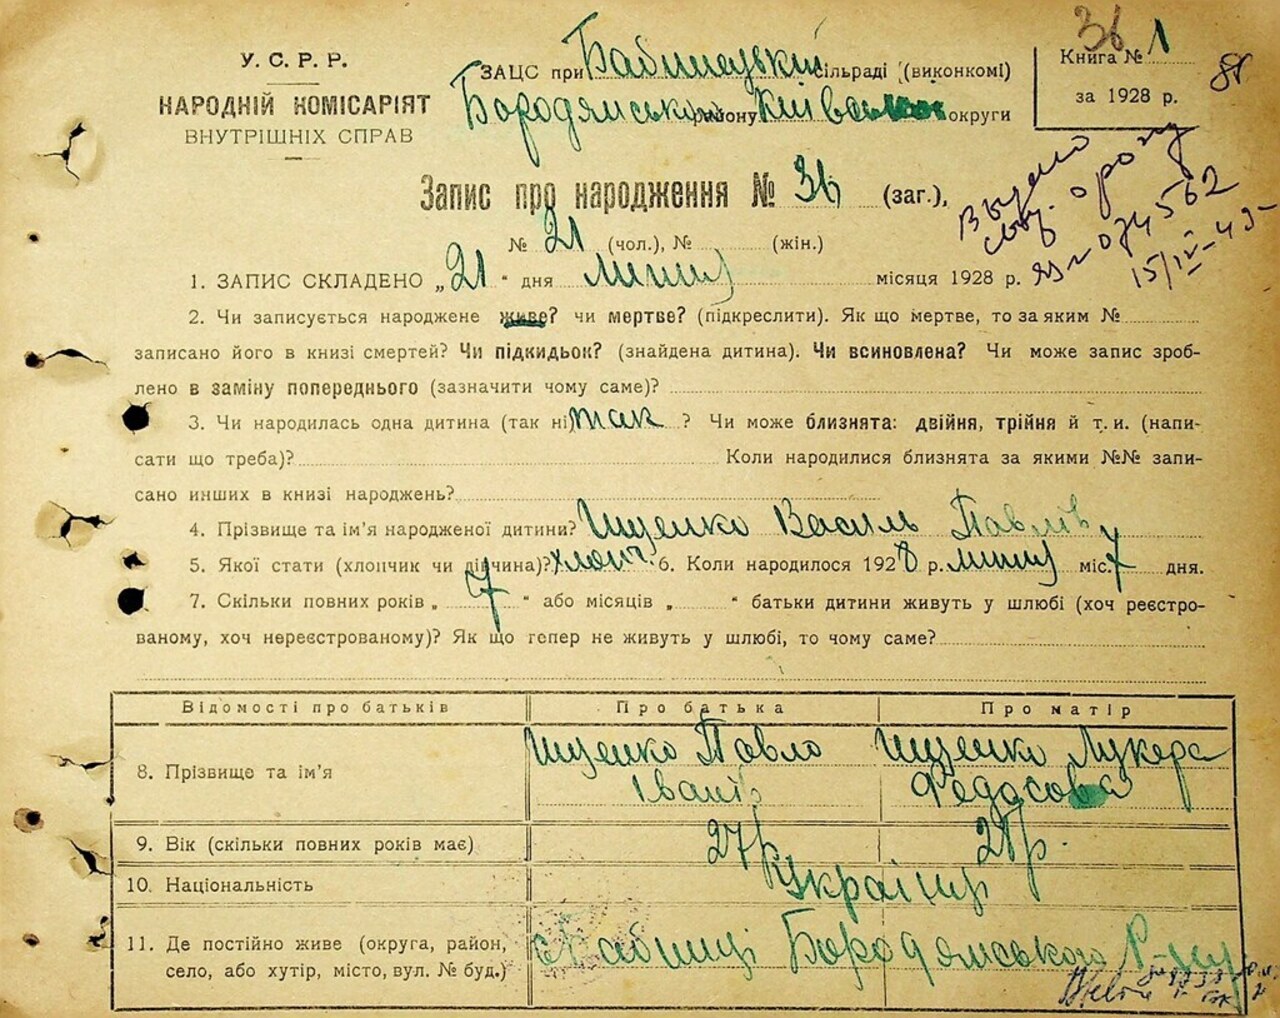 36
У. С. Р. Р.
НАРОДНІЙ КОМІСАРІЯТ
ВНУТРІШНІХ СПРАВ
ЗАЦС при Бабинецькій сільраді (виконкомі)
Бородямського району Київської округи
Книга № 1
за 1928 р.
Запис про народження № 36 (заг.),
№ 21 (чол.), № (жін.)
074562
15/IV-49
1. ЗАПИС СКЛАДЕНО „ 21 “ дня липня місяця 1928 р.
2. Чи записується народжене живе? чи мертве? (підкреслити). Як що мертве, то за яким №
записано його в книзі смертей? Чи підкидьок? (знайдена дитина). Чи всиновлена? Чи може запис зроб-
лено в заміну попереднього (зазначити чому саме)?
3. Чи народилась одна дитина (так ні) так ? Чи може близнята: двійня, трійня й т. и. (напи-
сати що треба)? Коли народилися близнята за якими №№ запи-
сано инших в книзі народжень?
4. Прізвище та ім’я народженої дитини? Іщенко Василь Павлів
5. Якої стати (хлопчик чи дівчина)? хлопч. 6. Коли народилося 1928 р. липня міс. 7 дня.
7. Скільки повних років „ 7 “ або місяців „ “ батьки дитини живуть у шлюбі (хоч реєстро-
ваному, хоч нереєстрованому)? Як що тепер не живуть у шлюбі, то чому саме?
Відомості про батьків Про батька Про матір
8. Прізвище та ім’я Іщенко Павло Іванів Іщенко Лукера Федосова
9. Вік (скільки повних років має) 27 р. 28 р.
10. Національність Українці
11. Де постійно живе (округа, район,
село, або хутір, місто, вул. № буд.) с. Бабинці Бородямського р-ну